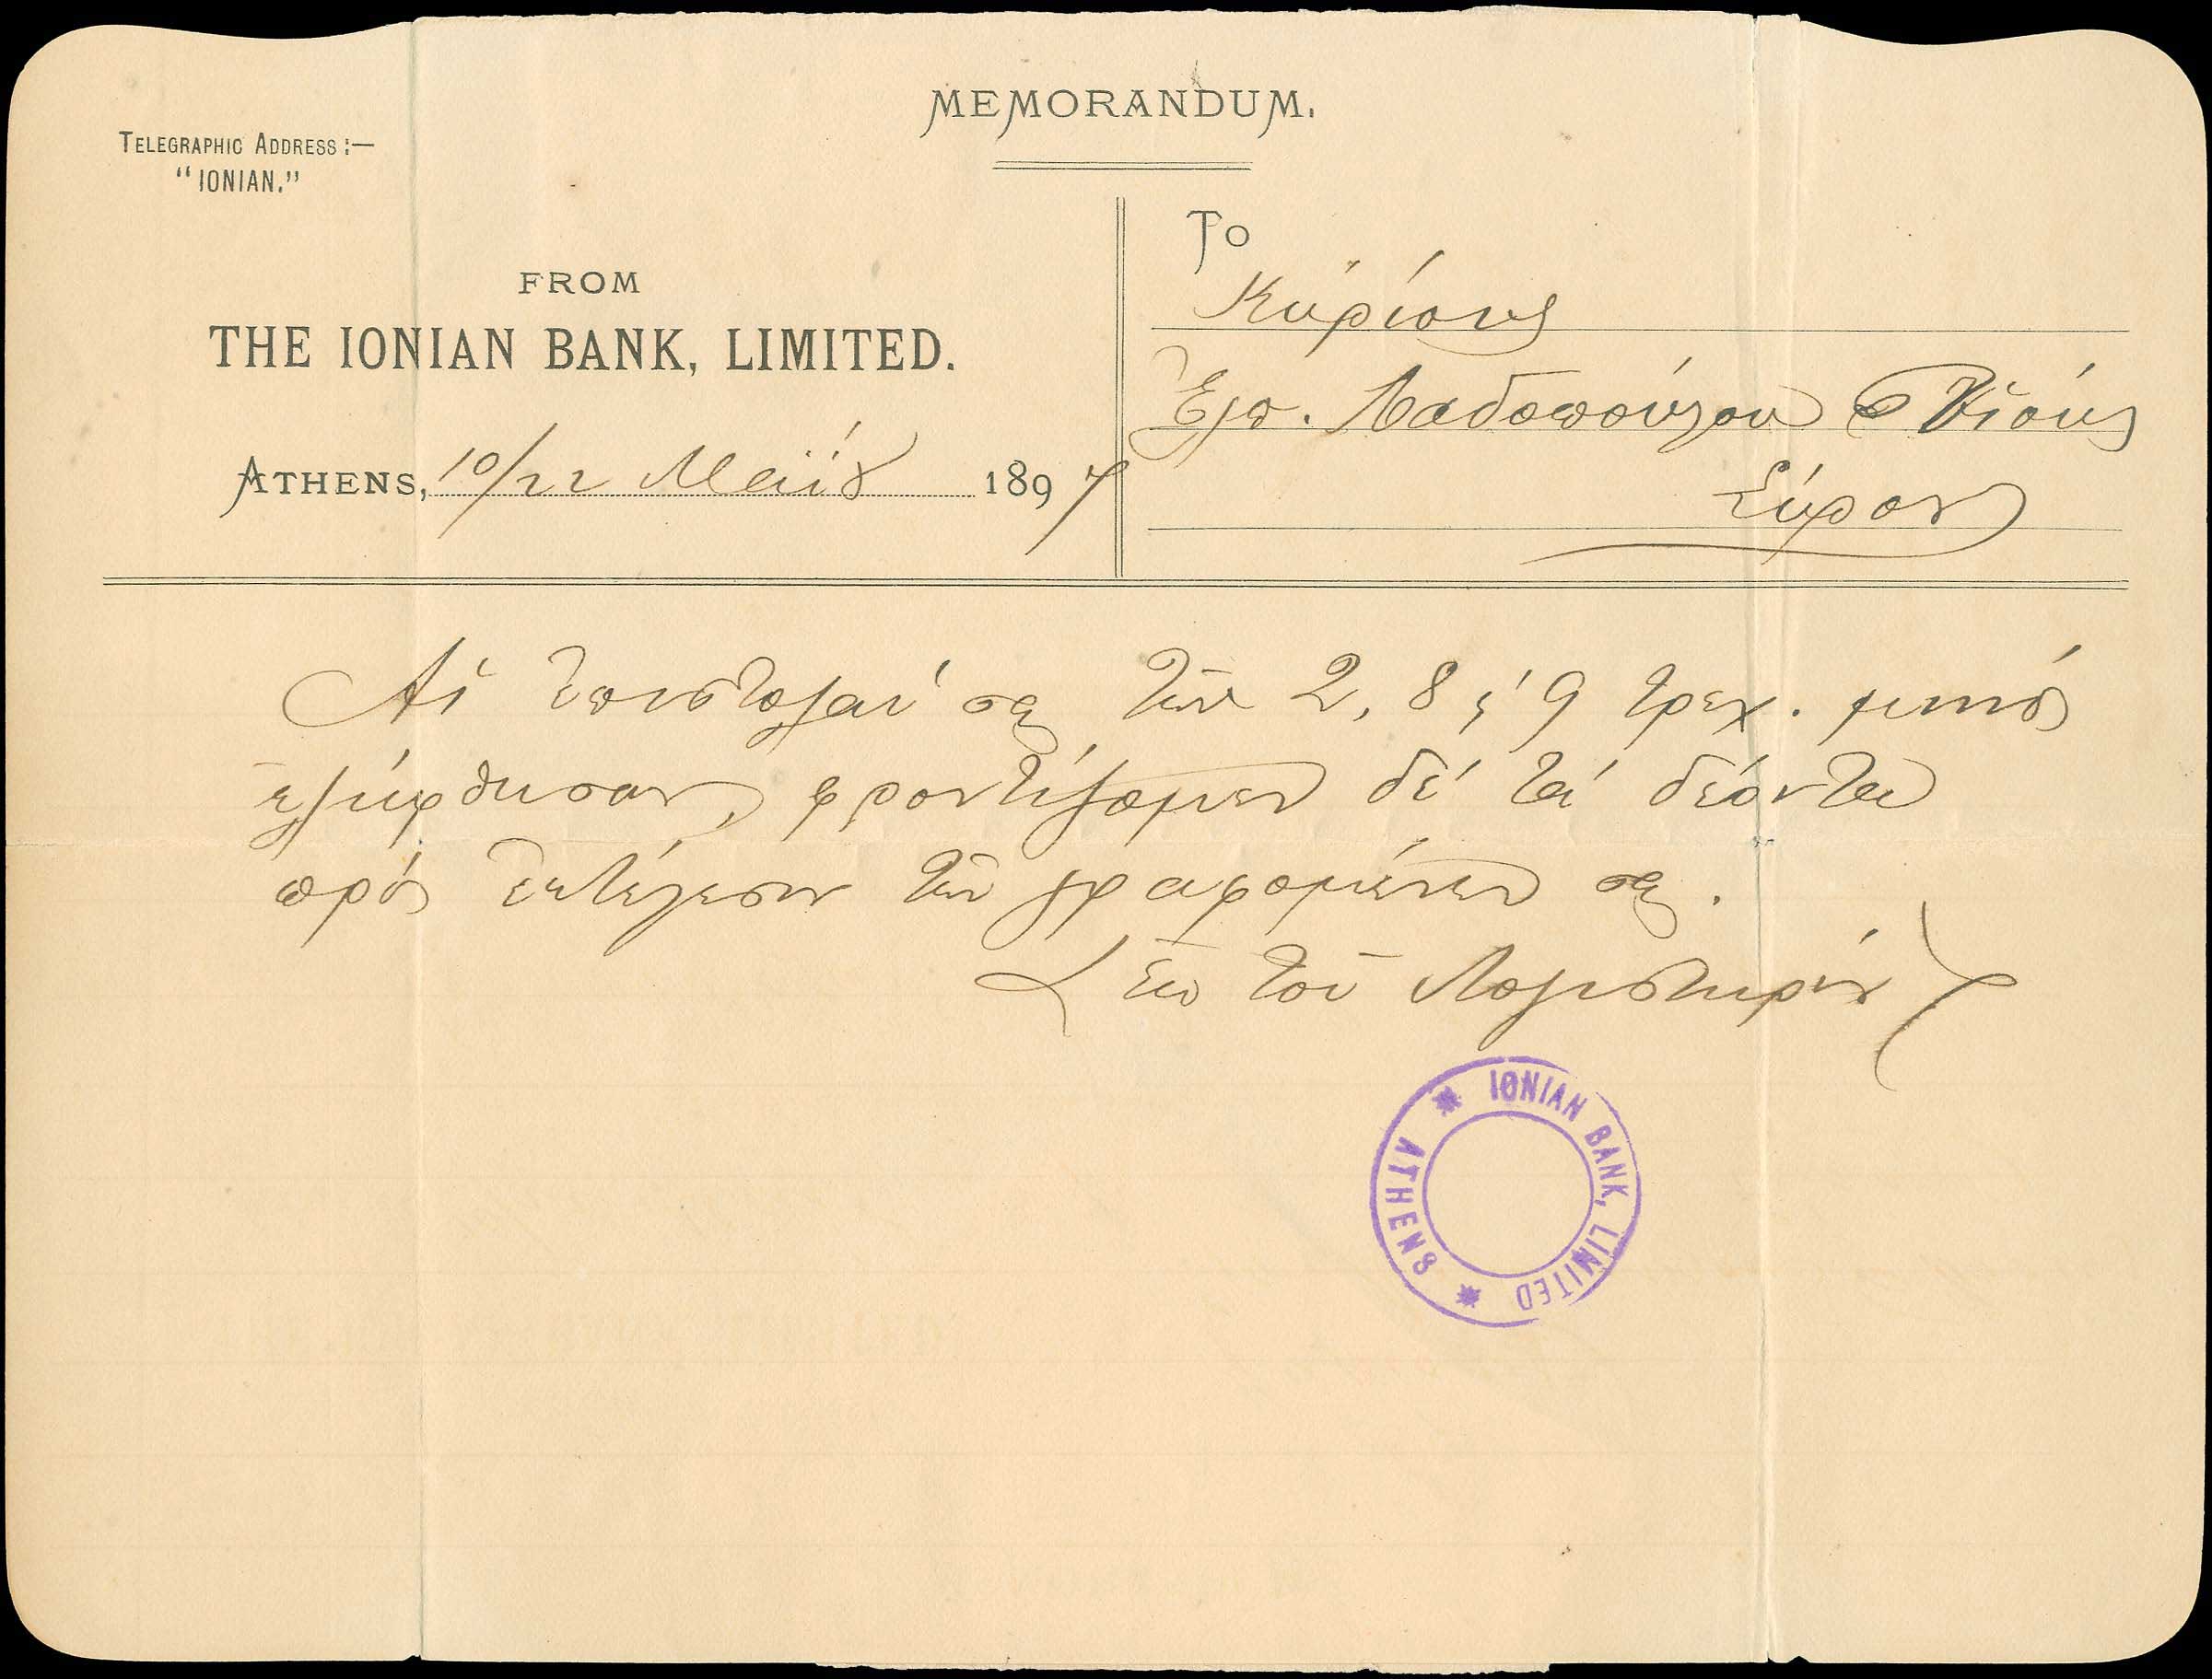 MEMORANDUM.
TELEGRAPHIC ADDRESS:—
"IONIAN."
FROM
THE IONIAN BANK, LIMITED.
ATHENS, 10/22 Μαΐου 1897
To
Κυρίους
Ἐλπ. Λαδοπούλου & Υἱούς
Σύρον
Αἱ ἐπιστολαί σας τῶν 2, 8 & 9 τρεχ. μηνός
ἐλήφθησαν, φροντίζομεν δέ τά δέοντα
πρός ἐκτέλεσιν τῶν γραφομένων σας.
Ἐκ τοῦ Λογιστηρίου
* IONIAN BANK, LIMITED * ATHENS